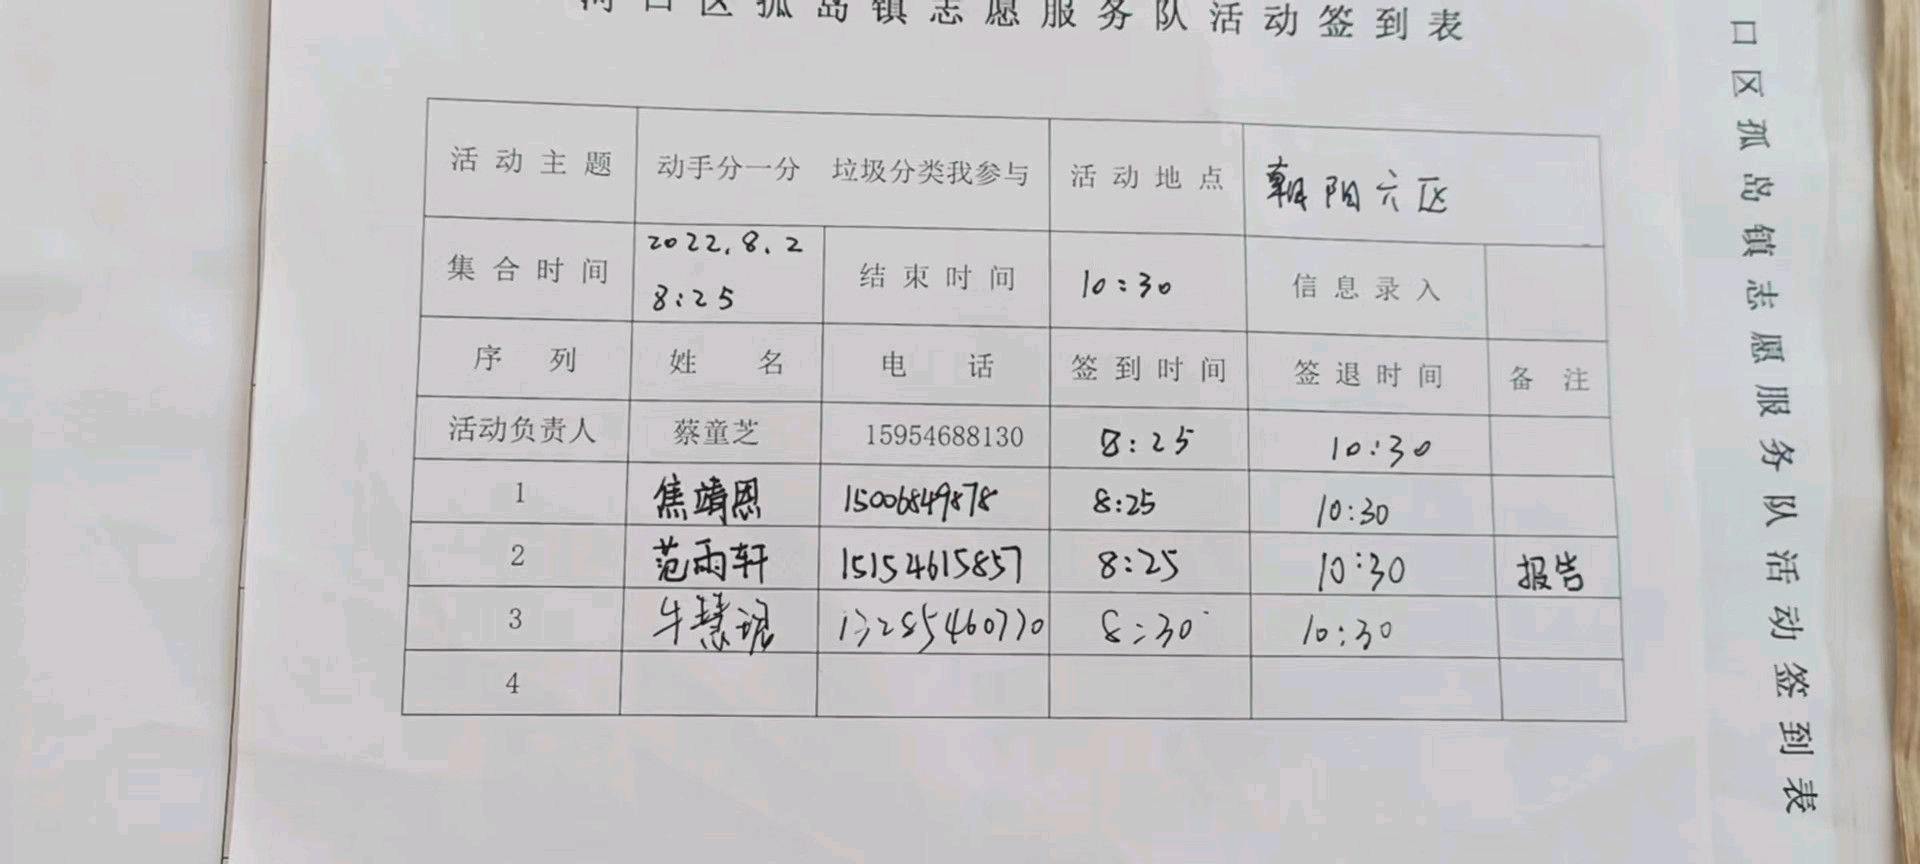 河口区孤岛镇志愿服务队活动签到表
活动主题 动手分一分 垃圾分类我参与 活动地点 朝阳六区
集合时间 2022.8.2 8:25 结束时间 10:30 信息录入
序列 姓名 电话 签到时间 签退时间 备注
活动负责人 蔡童芝 15954688130 8:25 10:30
1 焦靖恩 15006849878 8:25 10:30
2 范雨轩 15154615857 8:25 10:30 报告
3 牛慧琨 13285460770 8:30 10:30
4
口区孤岛镇志愿服务队活动签到表